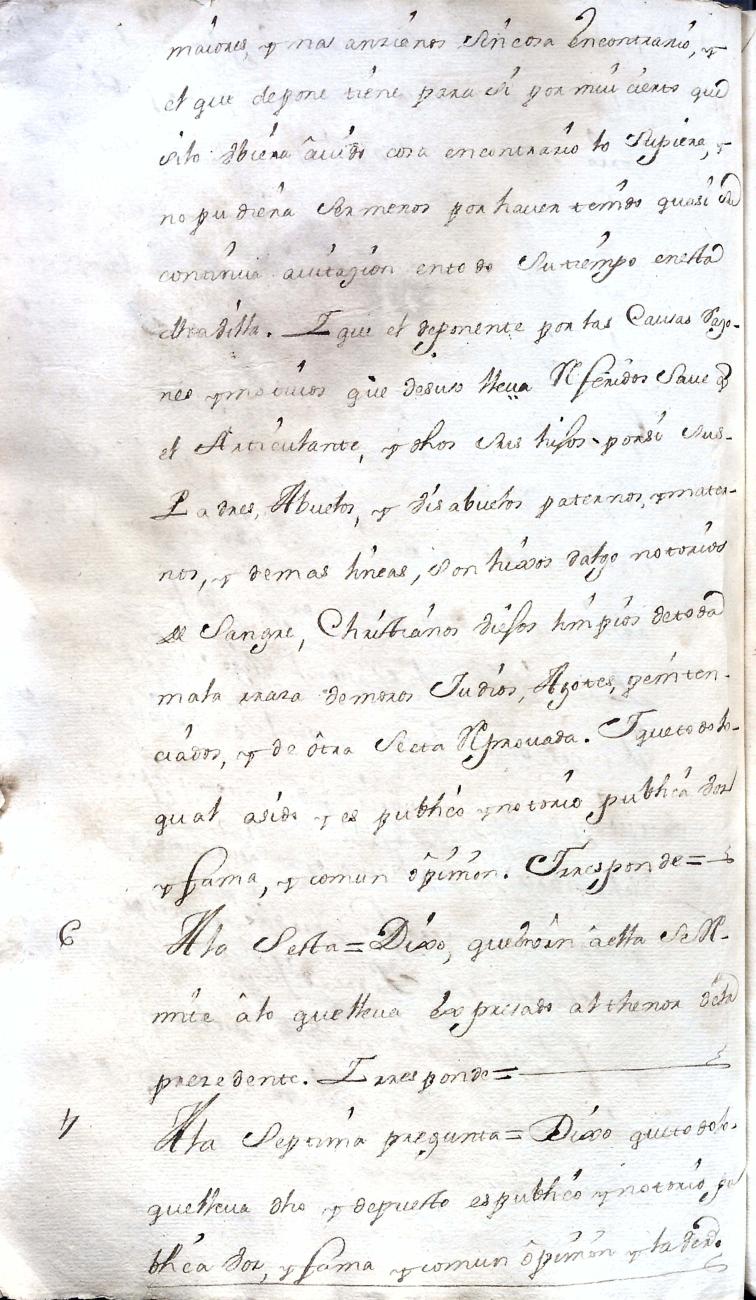 maiores, y mas anzianos sin cosa encontrario, y
el que depone tiene para si por mui cierto que
si lo vbiera âuido cosa encontrario lo Supiera, y
no pudiera ser menos por haver tenido quasi su
continua auitazion entodo Su tiempo enesta
dha villa. I que el deponente por las Causas Razo-
nes y motiuos que desuso lleua Referidos Saue q
el Articulante, y dhos sus hijos por si sus
Padres, Abuelos, y bisabuelos paternos, y mater-
nos, y demas lineas, son hixos dalgo notorios
de Sangre, Christianos biejos limpios de toda
mala rraza demoros Judios, Agotes, peniten-
ciados, y de ôtra Secta Reprouada. I que todo lo
qual asido y es publico y notorio publica voz
y fama, y comun ôpinion. I rresponde=
6 A la Sesta= Dixo, que
âesta Se Re-
mite âlo que lleua Expresado al thenor dela
prezedente. I rresponde=
7 A la Septima pregunta= Dixo que todo lo
que lleua dho y depuesto es publico y notorio, pu
blica voz, y fama y comun ôpinion y la verd